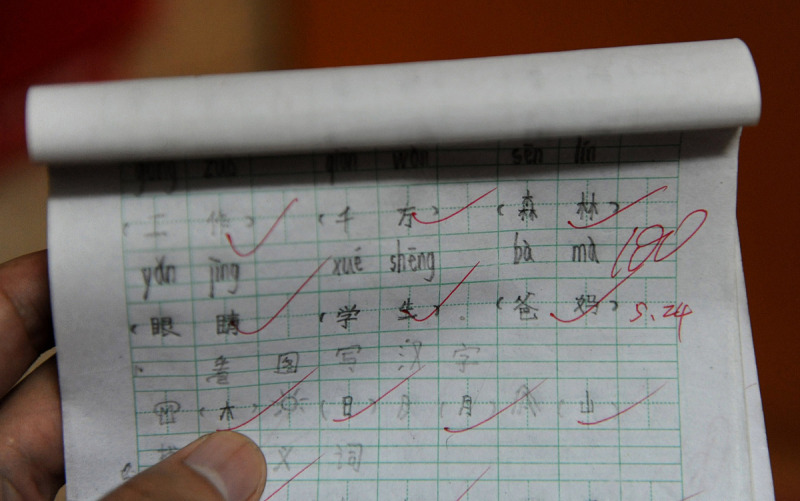 gōng zuò qiān wàn sēn lín
(工 作) (千 万) (森 林)
yǎn jīng xué shēng bà mā 100
(眼 睛) (学 生) (爸 妈) 5.24
看 图 写 汉 字
(木) (日) (月) (山)
词